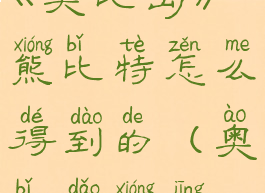 《奥比岛》
xióng bǐ tè zěn me
熊比特怎么
dé dào de ào
得到的（奥
bǐ dǎo xióng jīng